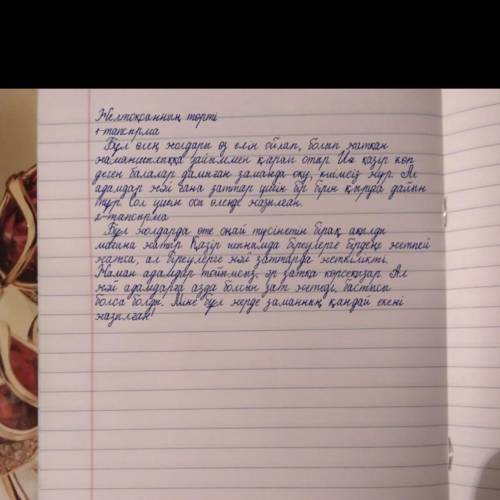 Желтоқсанның төрті
1-тапсырма
Бұл өлең жолдары өз елін ойлап, болып жатқан
жамансылыққа уайыммен қарап отыр. Иә қазір көп
деген балалар далыған заманда оқу, киімсіз жүр. Ал
адамдар жәй ғана заттар үшін бір бірін қыруға дайын
тұр. Сол үшін осы өлеңде жазылған.
2-тапсырма
Бұл жолдарда өте оңай түсінетін бірақ ақылды
мағына жатыр. Қазір шынымда біреулерге бірдеңе жетпей
жатса, ал біреулерге жәй заттарда жеткілікті.
Жаман адамдар тоймсыз, әр затқа көрсеқызар. Ал
жәй адамдарға азда болсын зат жетеді, бастысы
болса болды. Міне бұл жерде заманның қандай екені
жазылған